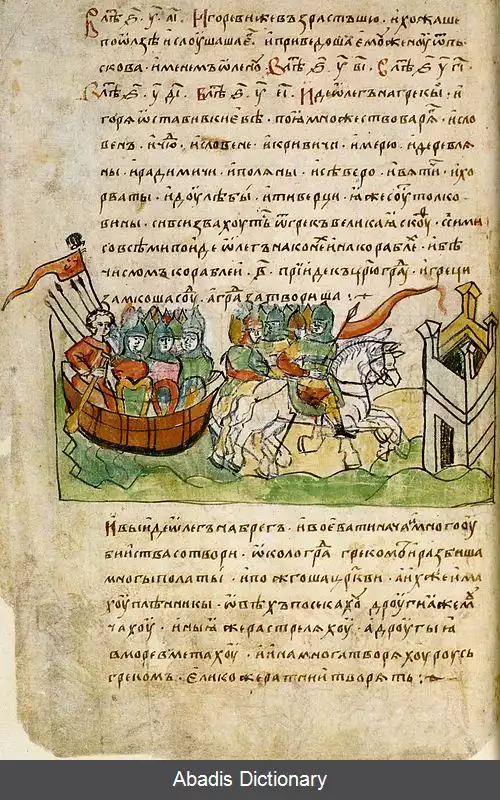 В лѣт҃ ҂ѕ҃ у҃ аі Игореви же възрастъшю и хожаше
по ѡлзѣ и слоушаша ег҃ и приведоша емоу женоу ѿ пь
скова именемъ ѡленоу В лѣт҃ ҂ѕ҃ у҃ ві В лѣт҃ ҂ѕ҃ у҃ гі
В лѣт҃ ҂ѕ҃ у҃ ді В лѣт҃ ҂ѕ҃ у҃ еі Иде ѡлегъ на грекы и
горѧ ѡстави в киевѣ поѧ множество варѧ и сло
венъ и чю и словене и кривичи и мерю и деревлѧ
ны и радимичи и полѧны и сѣверо и вѧтичи и хо
рваты и доулѣбы и тиверци ꙗже соуть толко
вины си вси звахоуть ѿ грекъ великаꙗ скоуѳ с сими
со всѣми поиде ѡлегъ на конех и на кораблех и бѣ
числомъ кораблеи в҃ прииде къ цр҃ю градоу и греци
замкоша соу а град затвориша
И выиде ѡлегъ на брегъ и воевати нача и много оу
биства сотвори ѡколо града грекомъ и разбиша
многы полаты и пожгоша цр҃кви а их же има
хоу плѣнникы ѡвѣхъ посекахоу дроугиꙗ же моу
чахоу иныꙗ же растрелѧхоу а дроугыꙗ
в море вметахоу и ина многа творѧхоу роусь
грекомъ елико же ратнии творѧть
Abadis Dictionary